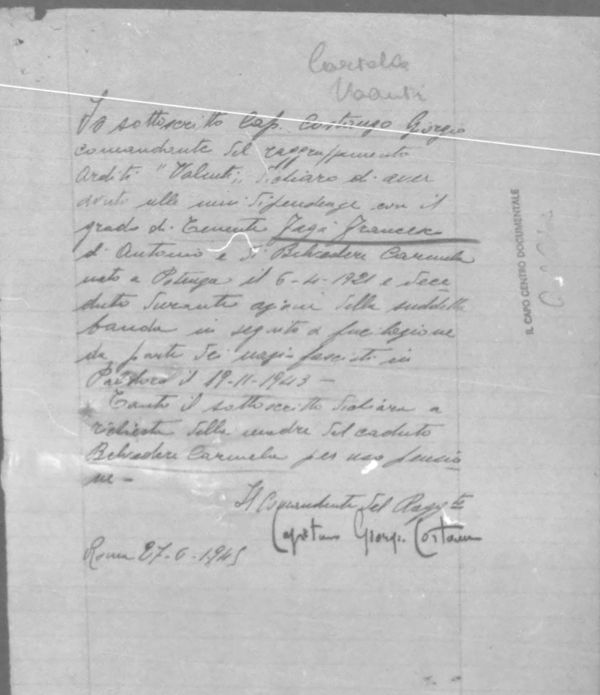 Cartella
Io sottoscritto Cap. Costanzo Giorgio
comandante del raggruppamento
Arditi "Valenti", dichiaro di aver
avuto alle mie dipendenze con il
grado di Tenente Jagi Francesco
di Antonio e di Belvedere Carmela
nato a Potenza il 6-4-1921 e dece
duto durante azioni della suddetta
banda in seguito a fucilazione
da parte dei nazi fascisti in
il 19-11-1943 -
Tanto il sottoscritto dichiara a
richiesta della madre del caduto
Belvedere Carmela per uso pensio
ne -
Il Comandante del Ragg.to
Capitano Giorgio Costanzo
Roma 27-6-1945
IL CAPO CENTRO DOCUMENTALE